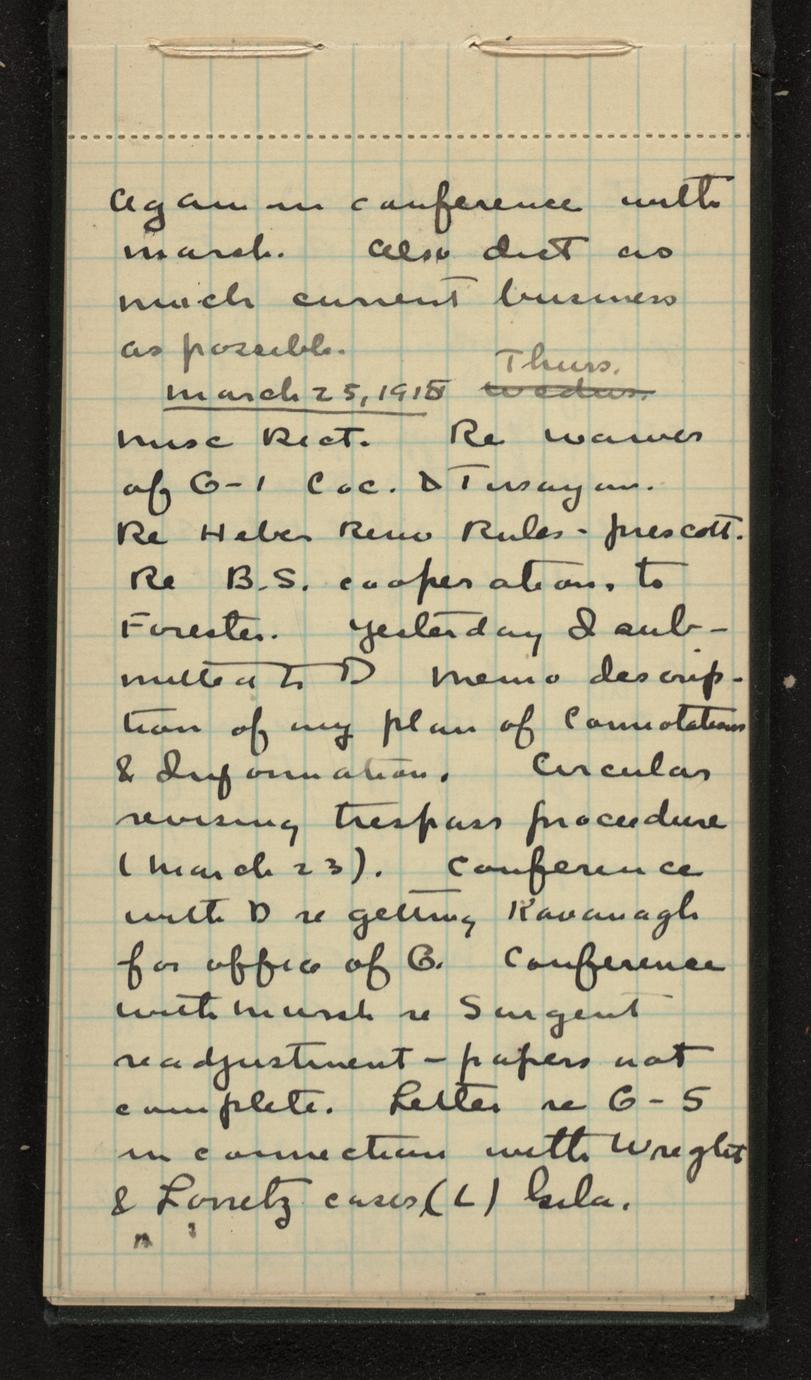 Again in conference with
Marsh. Also dict as
much current business
as possible.
March 25, 1915 Thurs. Wednes.
Misc Dict. Re waiver
of G-1 Coc. & Tusayan.
Re Heber Reno Rules - Prescott.
Re B.S. cooperation, to
Forester. Yesterday I sub-
mitted to D memo descrip-
tion of my plan of Connotations
& Information. Circular
revising trespass procedure
(March 23). Conference
with D re getting Kavanagh
for office of G. Conference
with Marsh re Surgent
readjustment - papers not
complete. Letter re G-5
in connection with Wright
& Lorretz cases (L) Gila.